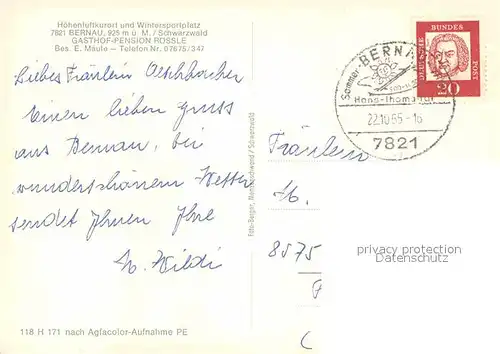 Höhenluftkurort und Wintersportplatz
7821 BERNAU, 925 m ü. M. / Schwarzwald
GASTHOF-PENSION RÖSSLE
Bes. E. Maule – Telefon Nr. 07675/347
Liebes Fräulein Oeschbacher
Einen lieben gruss
aus Bernau, bei
wunderschönem Wetter
sendet Ihnen Ihre
M. Wildi
118 H 171 nach Agfacolor-Aufnahme PE
Schwarzwald
BERNAU
Sommer
Hans-Thoma
22.10.65-16
7821
DEUTSCHE
BUNDES
POST
20
Fräulein
M.
8575
privacy protection
Oldthing.de